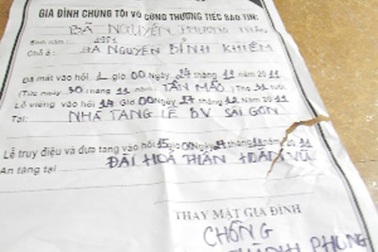 GIA ĐÌNH CHÚNG TÔI VÔ CÙNG THƯƠNG TIẾC BÁO TIN:
BÀ NGUYỄN PHƯƠNG
Sinh năm: 1951
Chỗ ở: BA NGUYỄN BỈNH KHIÊM
Đã mất vào hồi 1 giờ 00 Ngày 27 tháng 12 năm 20 11
(Tức ngày tháng 11 năm TÂN MÃO) Thọ tuổi
Lễ viếng vào hồi 14 Giờ 00 Ngày 27 tháng 12 năm 20 11
Tại: NHÀ TANG LỄ BV SÀI GÒN
Lễ truy điệu và đưa tang vào hồi 15 giờ 00 Ngày 27 tháng năm 20 11
An táng tại ĐÀI HOÁ THÂN HOÀN VŨ
THAY MẶT GIA ĐÌNH
CHỒNG
THÀNH PHONG